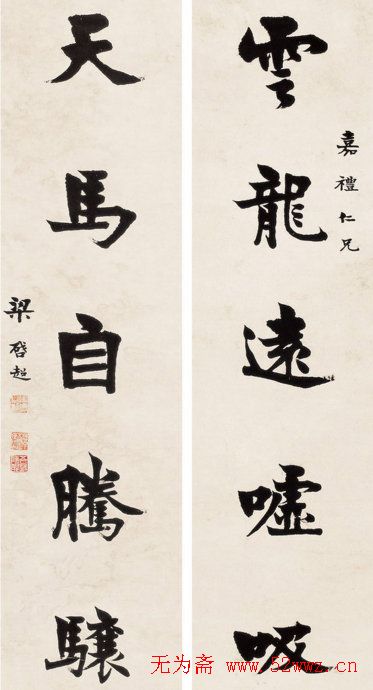 嘉禮仁兄
雲龍遠嘘吸
天馬自騰驤
梁啓超
无为斋 www.52wwz.cn